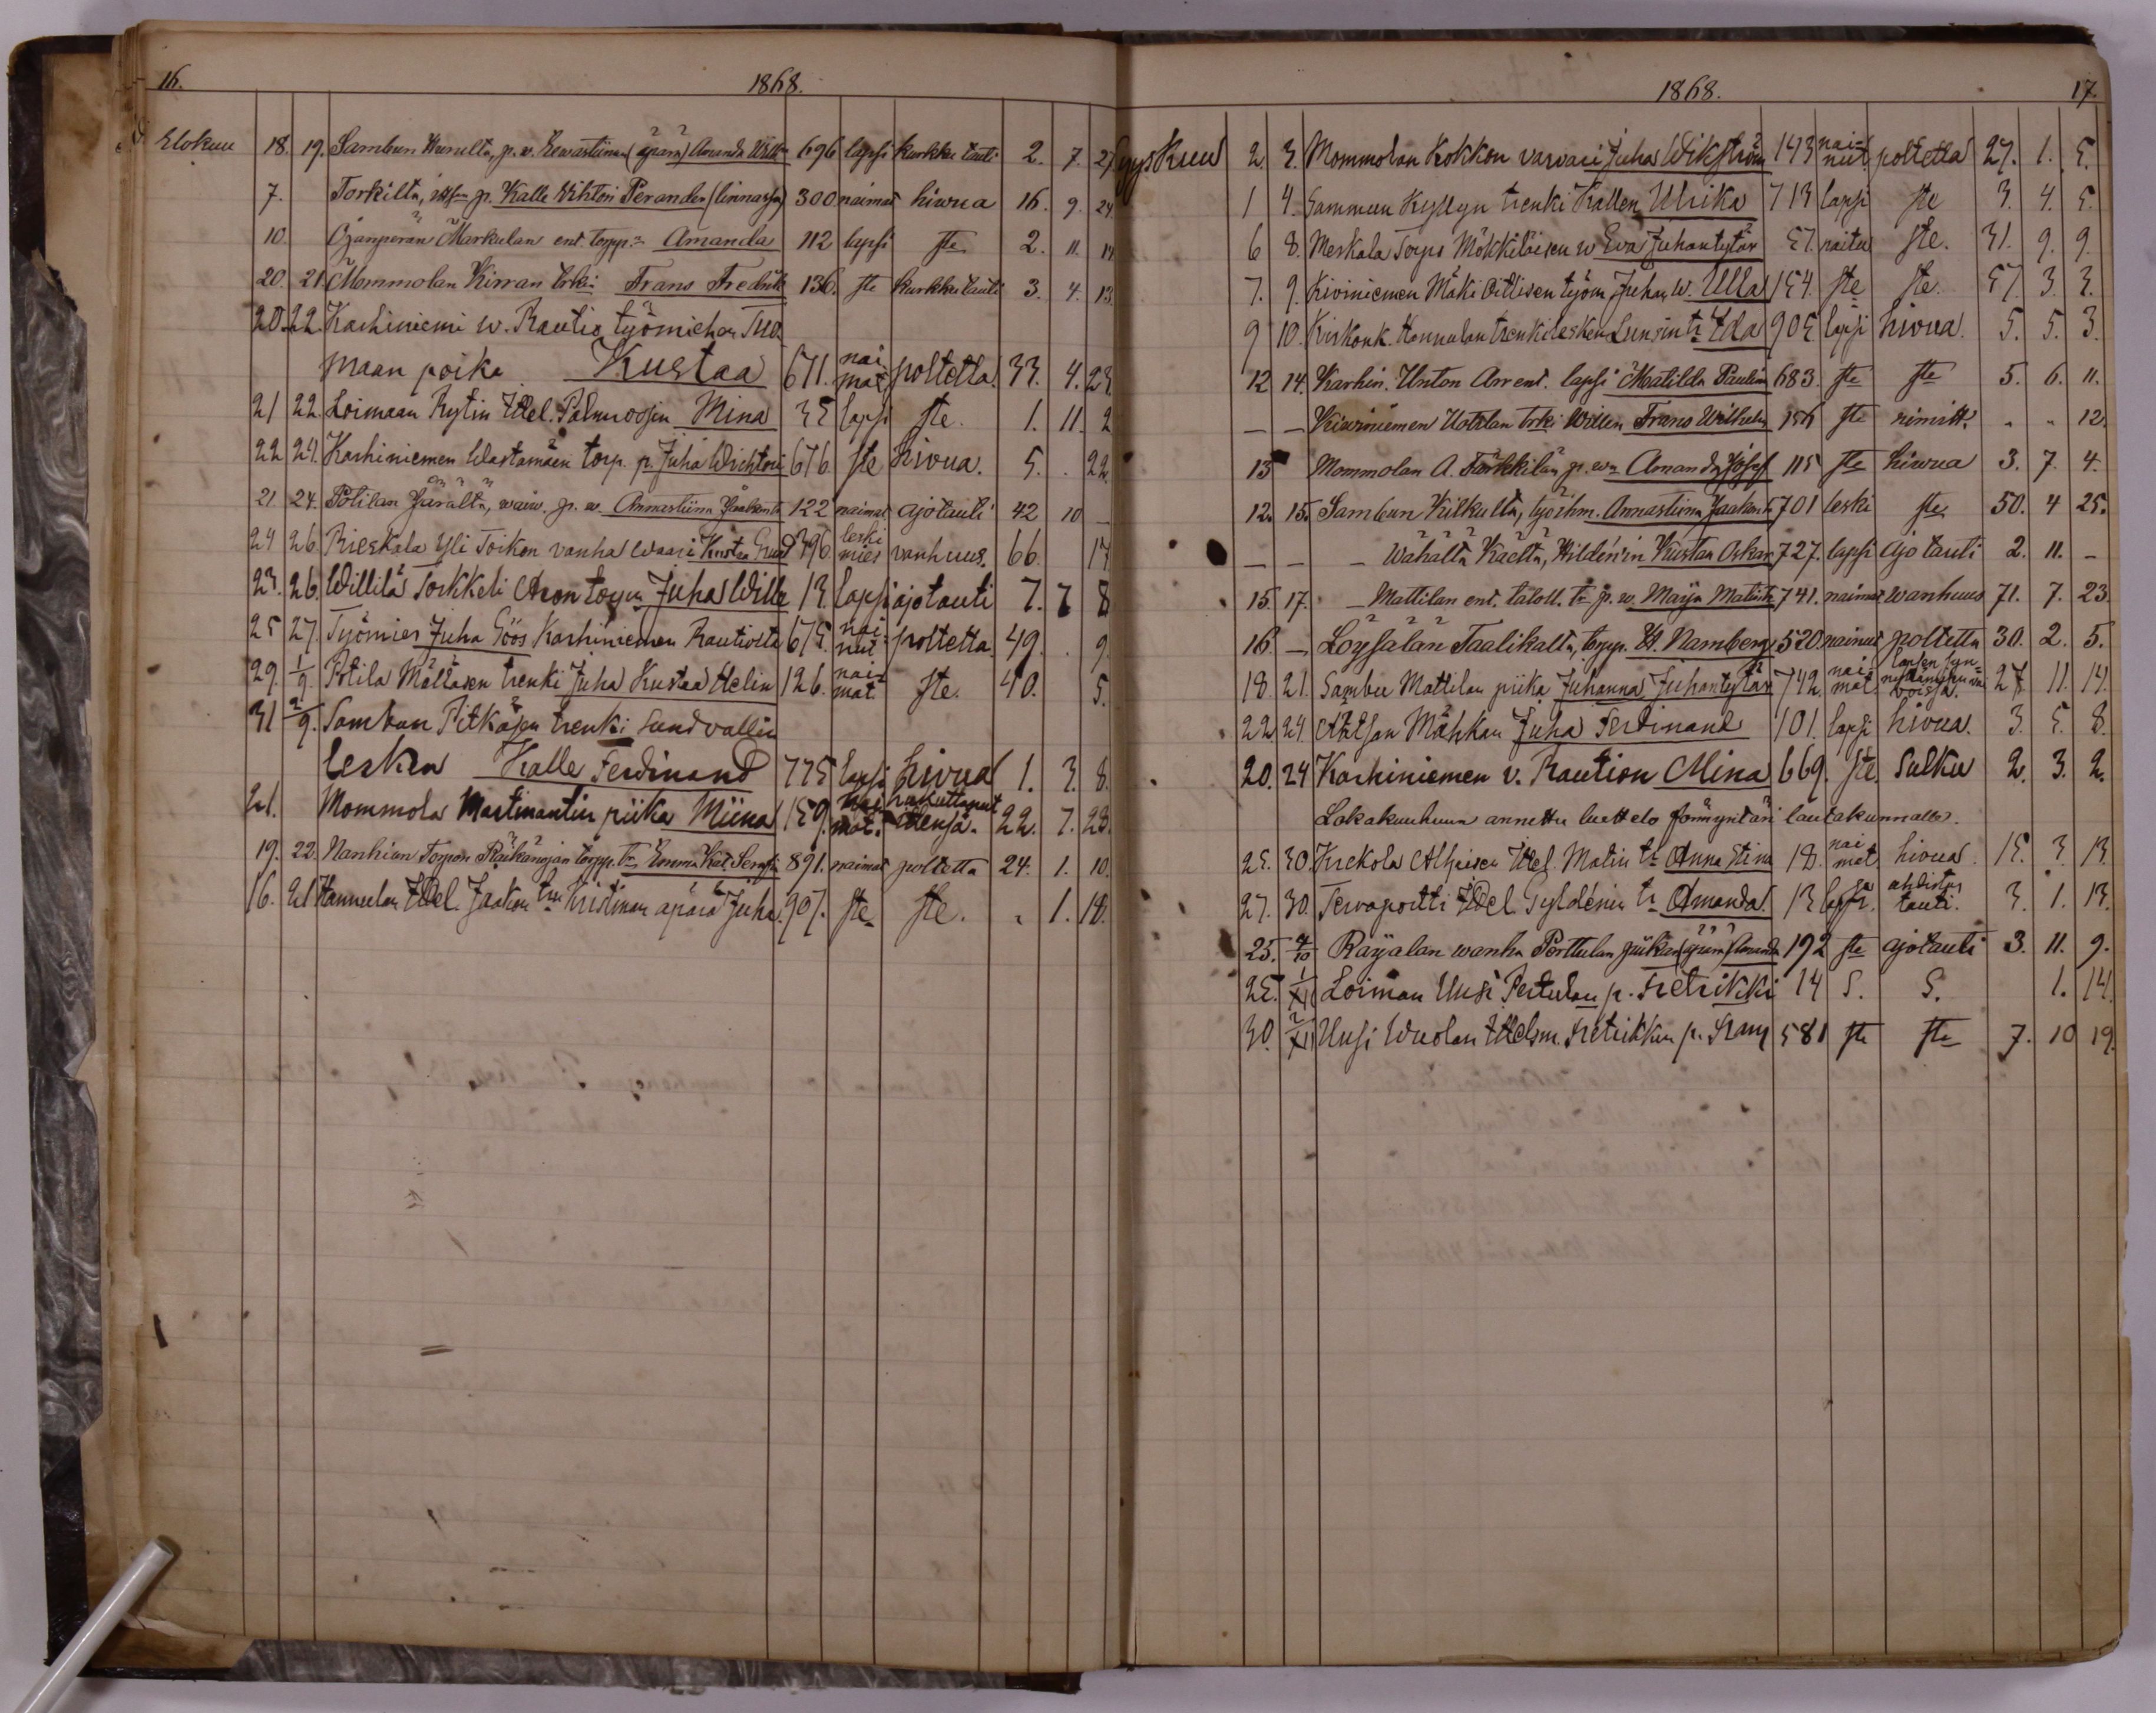 16.
1868.
Elokuu 18. 19. Sambun Hunulta, p. w. (äpärä) Amanda 696 lapsi kurkku tauti 2. 7. 27
7. Torkilta, p. Kalle Wihtori Perander (linnassa) 300 naimat hiwua 16. 9. 24.
10. Ojanperän Markulan ent. torpp. Amanda 112 lapsi ste 2. 11. 14
20. 21. Mommolan Kirran Frans Fredrik 136. ste kurkkutauti 3. 4. 13.
20. 22. Karhiniemi w. Rautio työmiehen Tuo
maan poika Kustaa 671. nai mat poltetta 33. 4. 23.
21 22. Loimaan Rytin Itel. Mina 35 lapsi ste. 1. 11. 2
22 24. Karhiniemen Wastamäen torp. p. Juha Wichtori 676. ste hivua. 5. . 22.
21. 24. Potilan Järältä, waiw. p. w. Annastiina Jaakont. 122 naimat ajotauti 42 10 —
24 26. Rieskala Yli Toikon vanha waari Kustaa 396 leski mies vanhuus. 66. 17
23. 26. Willilä Torkkeli Juha Wille 13. lapsi ajotauti 7. 7 8
25 27. Työmies Juha Göös Karhiniemen Rautiosta 675. nai nut poltetta. 49. . 9
29. 1/9. Potila Mällösen trenki Juha Kustaa Helin 126. nai mat ste. 40. 5.
31 2/9. Sambun Pitkäsen trenki Sundvallin
lesken Kalle Ferdinand 775 lapsi hivua 1. 3. 8.
21. Mommola Martinantin piika Miina 159. nai mat. hukuttanut itensä. 22. 7. 23.
19. 22. Nanhian Torpon Räikänojan torpp. Tr Emma Kat. 891. naimat poltetta 24. 1. 10.
16. 21 Hannulan Itel. Jaakon Kristinan äpärä Juha. 907. ste ste. . 1. 18.
1868.
17.
Syyskuu 2. 3. Mommolan Kokkon varvari Juha Wikström 143 nai nut. poltetta 27. 1. 5.
1 4. Sammun Kyllyn trenki Kallen Ulrika 713 lapsi ste 3. 4. 5.
6 8. Meskala Torpp Mökkiläisen w Eva Juhantytär 57. naitu ste. 31. 9. 9.
7. 9. Kiviniemen Mäki työm. Juhan w. Ulla 154. ste ste. 57. 3. 3.
9 10. Kirkonk. Hannulan trenki lesken tr Ida 905 lapsi hivua. 5. 5. 3.
12 14. Karhin. Unton Arrent. lapsi Matilda Paulin 683. ste ste 5. 6. 11.
— — Kiwiniemen Uotilan Frans Wilhelm 156 ste nimitt. " " 12.
13 Mommolan A. Tärkkilän p. wn Amanda Josef 115 ste hiwua 3. 7. 4.
12. 15. Sambun Kilkulta, Annastiina Jaakont 701 leski ste 50. 4 25.
— — — Wähältä Käeltä, Hilden'in Kustan Oskar 727. lapsi Ajo tauti 2. 11. —
15. 17. — Mattilan ent. taloll. tr p. w. Maija Matint. 741. naimat wanhuus 71. 7. 23.
16. — Löysälän Taalikalta, torpp. K. Namberg 520 nainut poltetta 30. 2. 5.
18. 21. Sambu Mattilan piika Juhanna, Juhantytär 742. nai mat lapsen syn nyttämisen voissa. 27. 11. 14.
22. 24. Mähkän Juha Ferdinand 101. lapsi hivua. 3. 5. 8.
20. 24 Karhiniemen v. Raution Mina 669. ste. Sulku 2. 3. 2.
Lokakuuhun annettu luettelo lautakunnalle.
25. 30. Krekola Alhaisen Itel. Matin tr Anna Stina 18. nai mat hivua. 15. 3. 13.
27. 30. Tervaportti Itel. Gyldenin tr Amanda. 13 lapsi. ahdistus tauti. 3. 1. 13.
25. 4/10 Raijalan wanha Perttulan piikan Amanda 192 ste ajotauti 3. 11. 9.
25. 1/XI Loiman Uusi Pertulan p. Fretrikki 14 S. S. 1. 14.
30. 2/XI Uusi Wuolan Itelsm. Fretrikkin p. Frans 581 ste ste 7. 10 19.